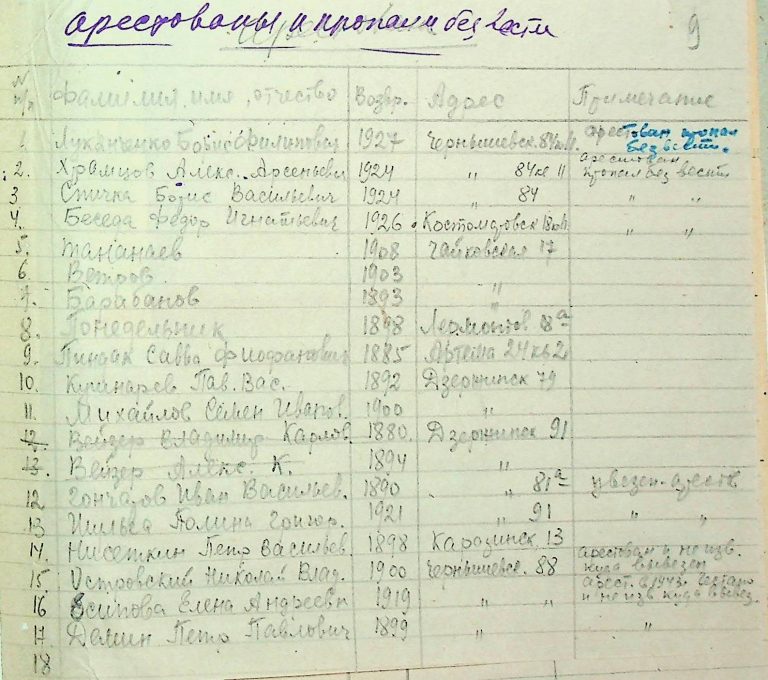 арестованы и пропали без вести
9
№ п/п Фамилия, имя, отчество Возвр. Адрес Примечание
1. Луканченко Борис Филиппович 1927 Чернышевск. 84 кв 11. арестован пропал без вести.
2. Храмцов Алекс. Арсеньеви 1924 " 84 кв 11 арестован пропал без вести
3 Спичка Борис Васильевич 1924 " 84 " "
4. Беседа Федор Игнатьевич 1926 Костомаровск " "
5. Тананаев 1908 Чайковская 17
6. Ветров 1903 "
7. Барабанов 1893 "
8. Понедельник 1898 Лермонтов 18а
9. Пиндак Савва Фиофанович 1885 Артема 24 кв 2
10. Кушнарев Пав. Вас. 1892 Дзержинск 79
11. Михайлов Семен Иванов. 1900 "
12. Вейзер Владимир Карлов 1880. Дзержинск 91
13. Вейзер Алекс. К. 1894 "
12 Гончаров Иван Васильев. 1890 " 81а увезен арест
13 Полина Григор. 1921 " 91 " "
14. Нисеткин Петр Васильев. 1898 Каразинск 13 арестован и не изв. куда вывезен
15 Островский Николай Влад. 1900 Чернышевск. 88 арест. в 1943. Гестапо и не изв куда вывез.
16 Осипова Елена Андреевн 1919 " "
17. Дамин Петр Павлович 1899 " "
18